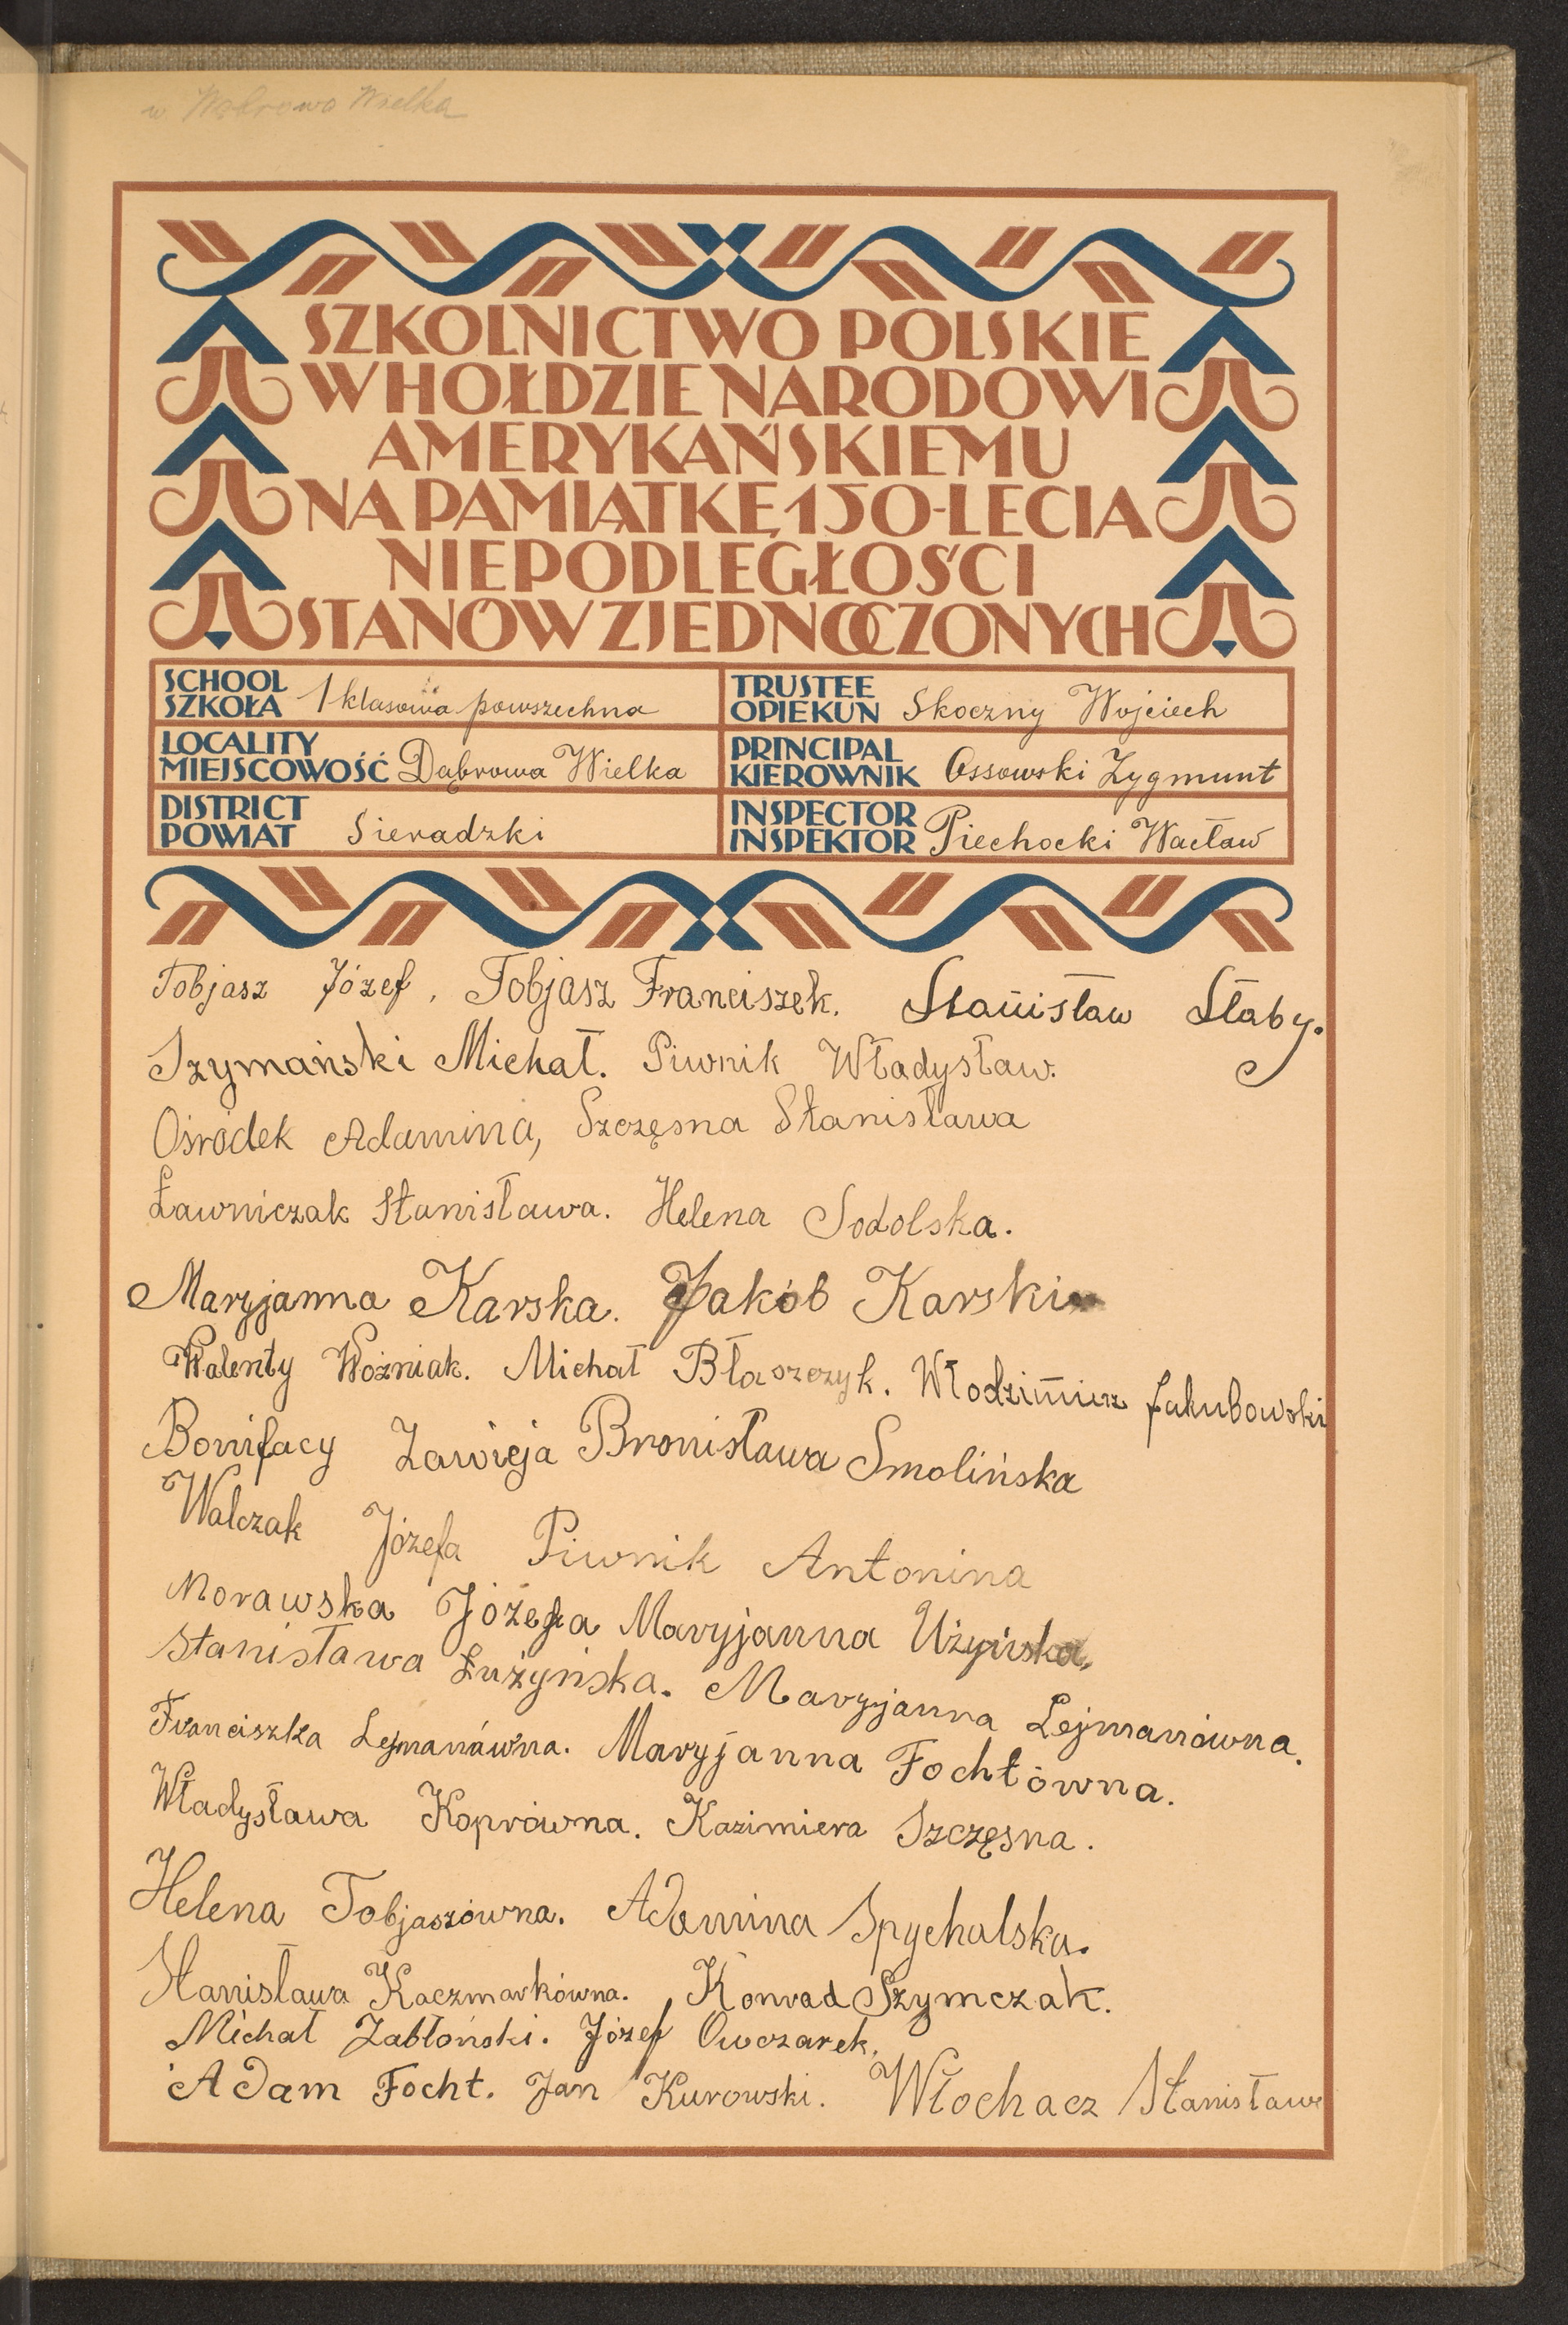 w Dąbrowo Wielka
SZKOLNICTWO POLSKIE
W HOŁDZIE NARODOWI
AMERYKAŃSKIEMU
NA PAMIĄTKĘ 150-LECIA
NIEPODLEGŁOŚCI
STANÓW ZJEDNOCZONYCH
SCHOOL
SZKOŁA 1 klasowa powszechna
TRUSTEE
OPIEKUN Skoczny Wojciech
LOCALITY
MIEJSCOWOŚĆ Dąbrowa Wielka
PRINCIPAL
KIEROWNIK Ossowski Zygmunt
DISTRICT
POWIAT Sieradzki
INSPECTOR
INSPEKTOR Piechocki Wacław
Tobjasz Józef, Tobjasz Franciszek. Stanisław Słaby.
Szymański Michał. Piwnik Władysław.
Ośrodek Adamina, Szczęsna Stanisława
Ławniczak Stanisława. Helena Sodolska.
Maryjanna Karska. Jakób Karski
Walenty Woźniak. Michał Błaszczyk. Włodzimierz Jakubowski
Bonifacy Zawieja Bronisława Smolińska
Walczak Józefa Piwnik Antonina
Morawska Józefa Maryjanna Użyńska.
Stanisława Łużyńska. Maryjanna Lejmanówna.
Franciszka Lejmanówna. Maryjanna Fochtówna.
Władysława Koprówna. Kazimiera Szczęsna.
Helena Tobjaszówna. Adamina Spychalska.
Stanisława Kaczmarkówna. Konrad Szymczak.
Michał Zabłoński. Józef Owczarek.
Adam Focht. Jan Kurowski. Włochacz Stanisław